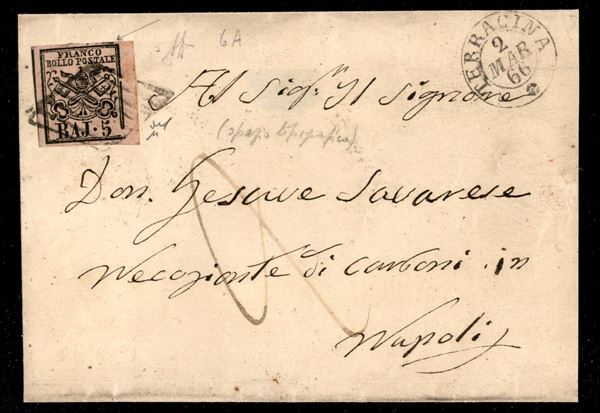 FRANCO
BOLLO POSTALE
BAJ · 5
6A
TERRACINA
2
MAR
66
Al Sigr. Il Signore
(spazio tipografico)
Don. Gesave Savarese
Necoziante di carboni in
Napoli